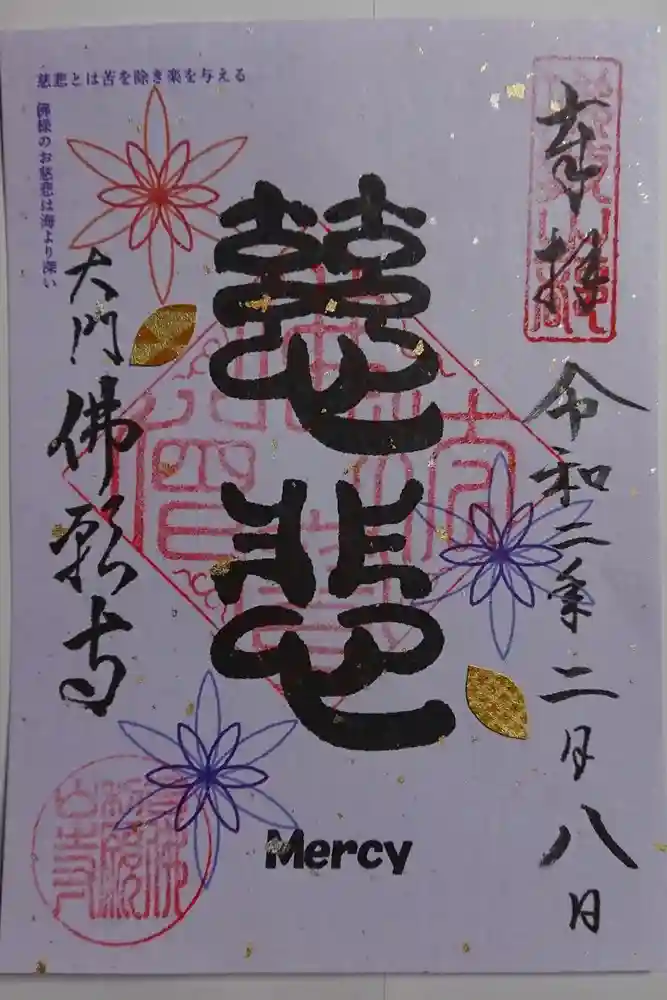 奉拝
令和二年二月八日
慈悲
慈悲とは苦を除き楽を与える
佛様のお慈悲は海より深い
大門
佛願寺
Mercy